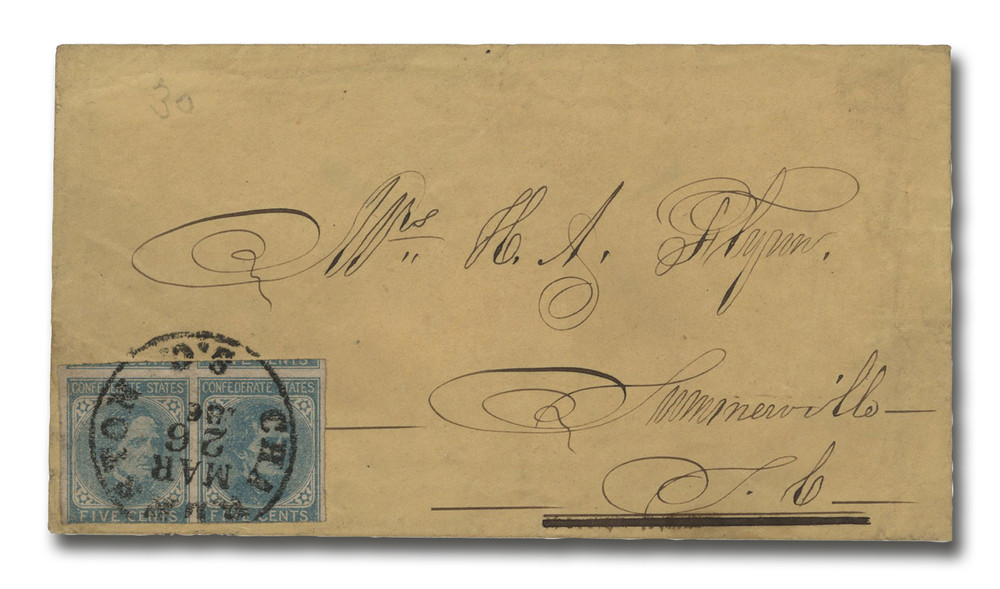 30
Mrs. H. A. Flynn.
Summerville
S. C
FIVE CENTS
CONFEDERATE STATES CONFEDERATE STATES
FIVE CENTS FIVE CENTS
CHARLESTON S.C.
MAR
26